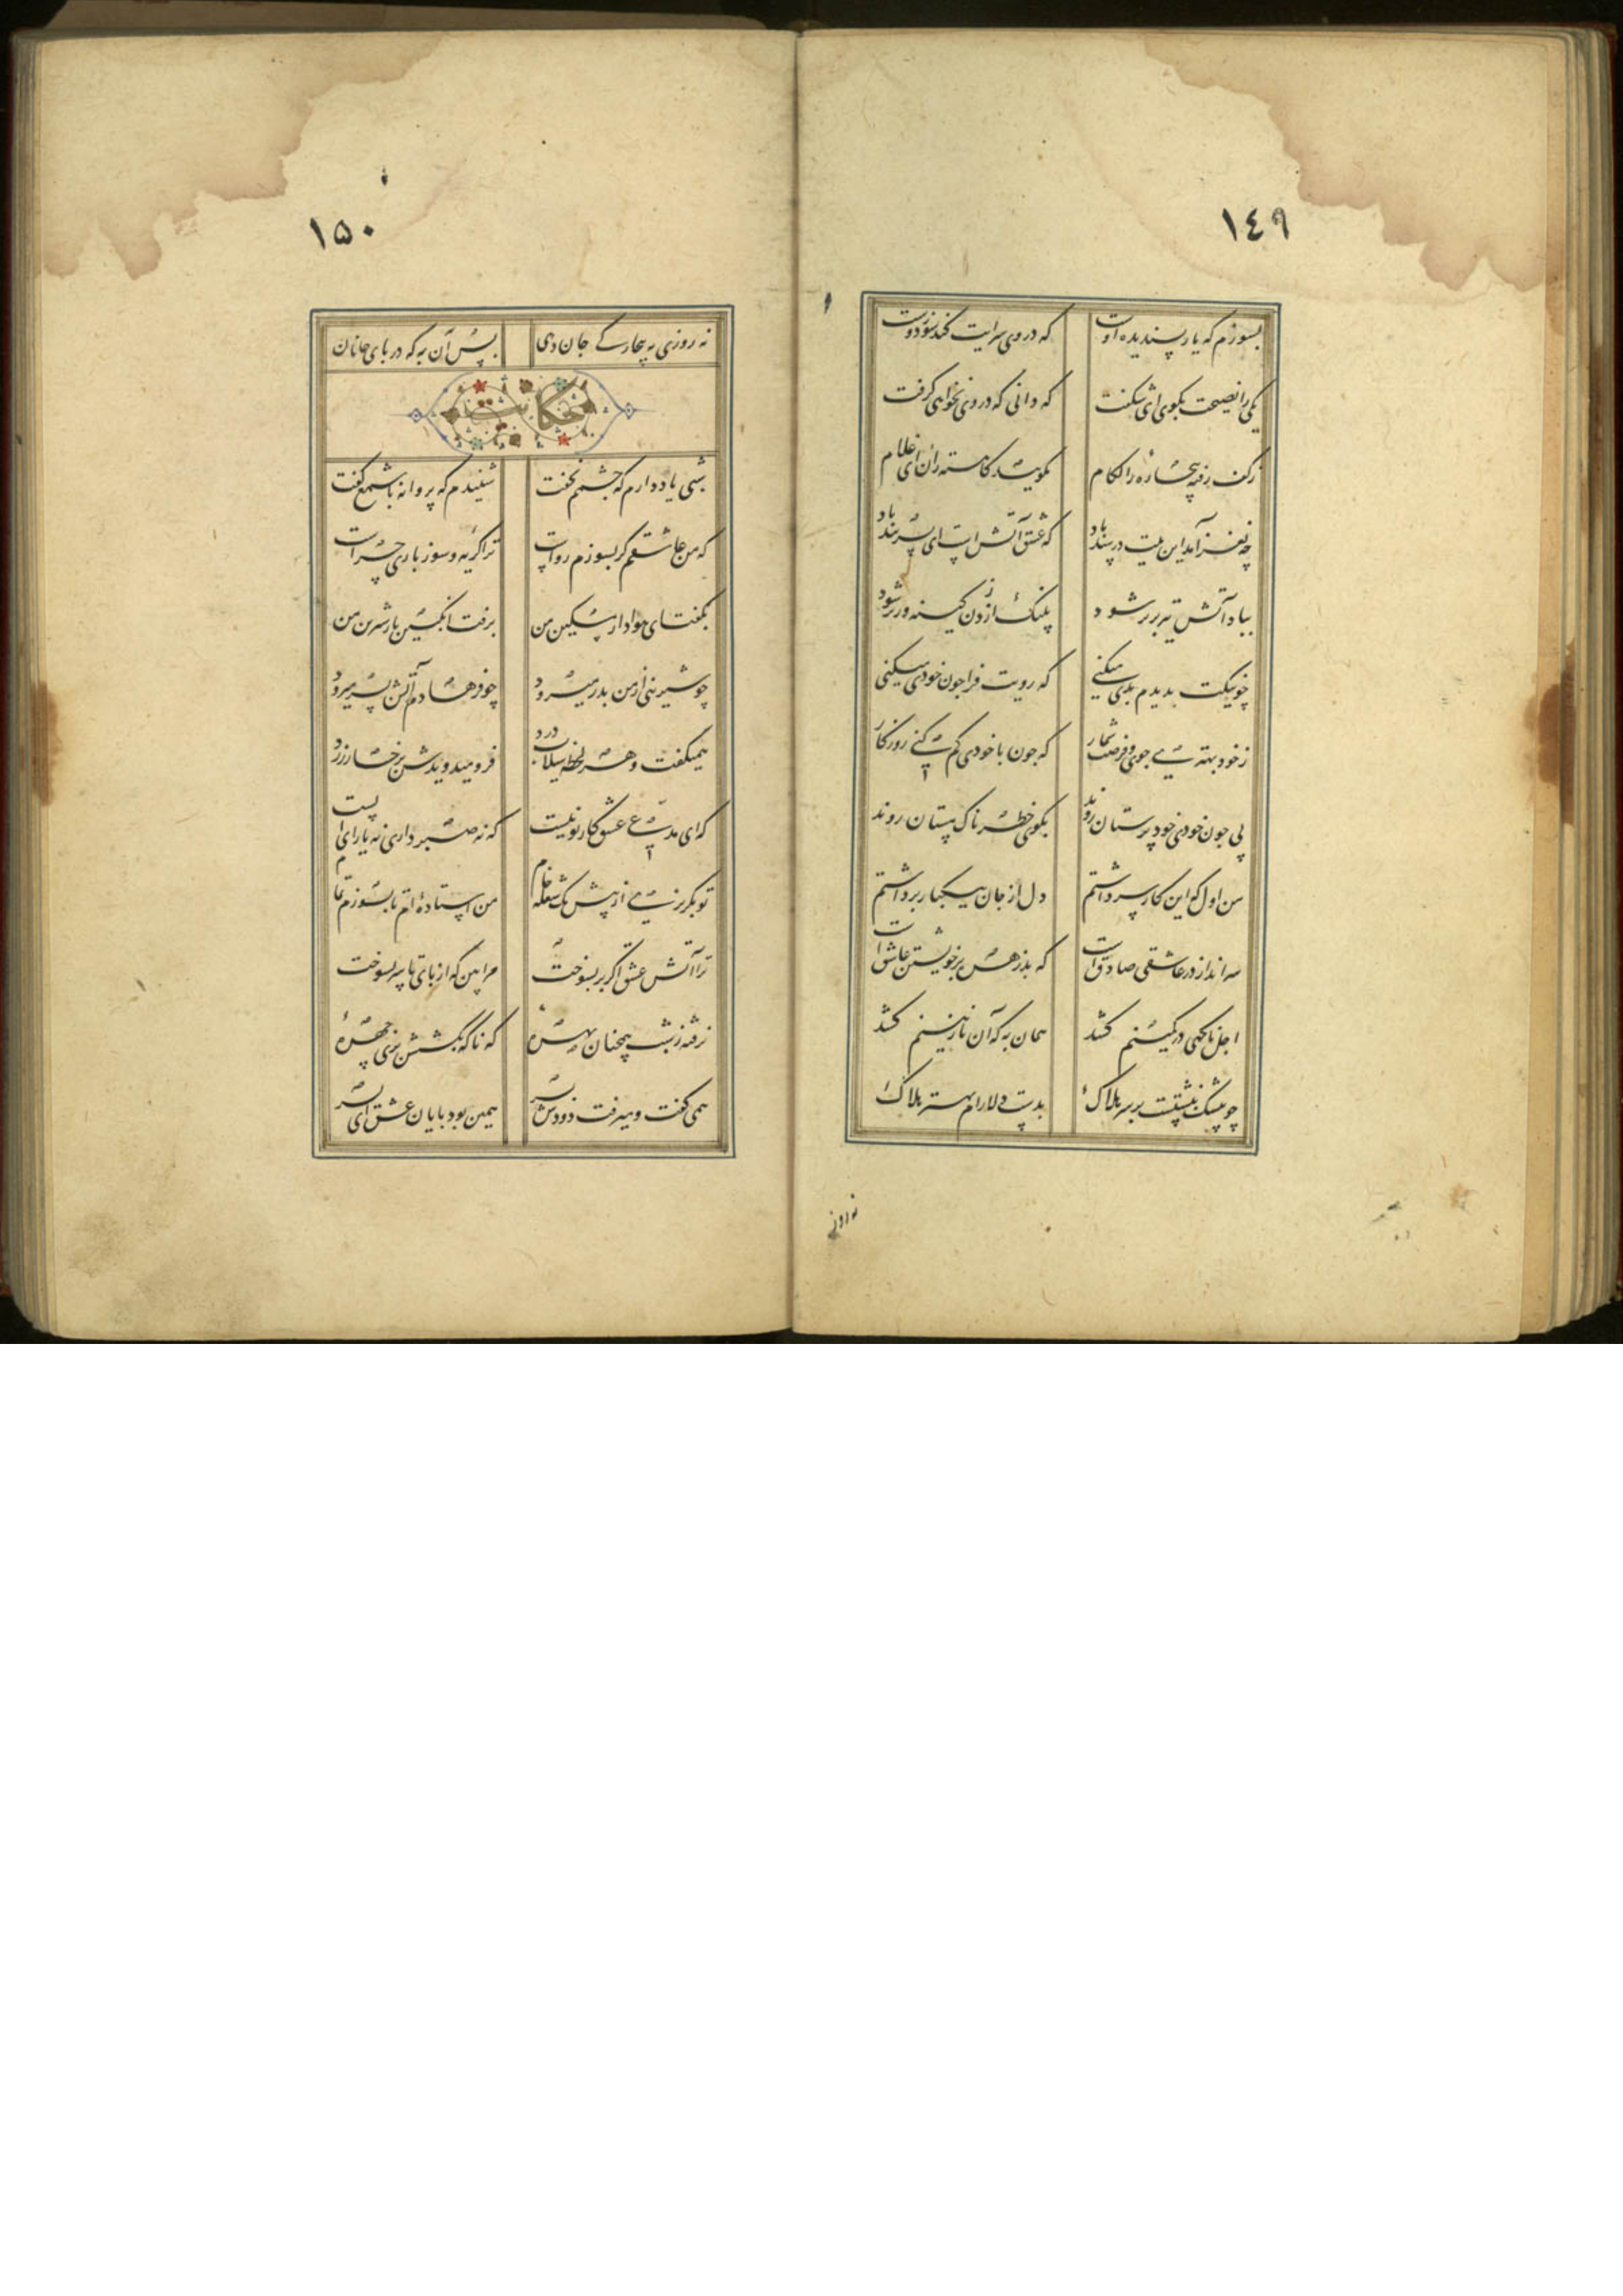 ١٤٩
بسوزم که یار پسندیده اوست که در وی سرایت کند سوز دوست
یکی را نصیحت مگوی ای شگفت که دانی که در وی نخواهد گرفت
ز کف رفته بیچاره را لگام نگویند کاهسته ران ای غلام
چه نغز آمد این بیت در سندباد که عشق آتش است ای پسر پند باد
بباد آتش تیز برتر شود پلنگ از زدن کینه ورتر شود
چو نیکت بدیدم بدی میکنی که رویت فرا چون خودی میکنی
ز خود بهتری جوی و فرصت شمار که چون با خودی گم کنی روزگار
پی چون خودی خود پرستان روند بکوی خطرناک مستان روند
من اول که این کار سر داشتم دل از جان بیکبار برداشتم
سر انداز در عاشقی صادق است که بد زهره بر خویشتن عاشق است
اجل ناگهی در کمینم کشد همان به که آن نازنینم کشد
چو بیشک نبشتست بر سر هلاک بدست دلارام بهتر هلاک
نه روزی
١٥٠
نه روزی به بیچارگی جان دهی پس آن به که در پای جانان
حکایت
شبی یاد دارم که چشمم نخفت شنیدم که پروانه با شمع گفت
که من عاشقم گر بسوزم رواست ترا گریه و سوز باری چراست
بگفت ای هوادار مسکین من برفت انگبین یار شیرین من
چو شیرینی از من بدر میرود چو فرهادم آتش بسر میرود
همیگفت و هر لحظه سیلاب درد فرو میدویدش برخسار زرد
که ای مدعی عشق کار تو نیست که نه صبر داری نه یارای ایست
تو بگریزی از پیش یک شعله خام من استاده ام تا بسوزم تمام
ترا آتش عشق اگر پر بسوخت مرا بین که از پای تا سر بسوخت
نرفته ز شب همچنان بهره که ناگه بکشتش پری چهره
همی گفت و میرفت دودش بسر همین بود پایان عشق ای پسر